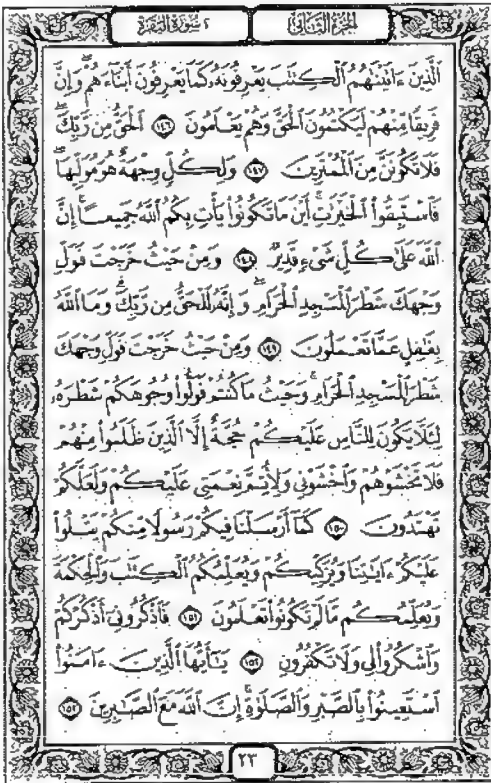 الجزء الثاني
٢ سورة البقرة
ٱلَّذِينَ ءَاتَيْنَٰهُمُ ٱلْكِتَٰبَ يَعْرِفُونَهُۥ كَمَا يَعْرِفُونَ أَبْنَآءَهُمْ ۖ وَإِنَّ
فَرِيقًا مِّنْهُمْ لَيَكْتُمُونَ ٱلْحَقَّ وَهُمْ يَعْلَمُونَ ١٤٦ ٱلْحَقُّ مِن رَّبِّكَ ۖ
فَلَا تَكُونَنَّ مِنَ ٱلْمُمْتَرِينَ ١٤٧ وَلِكُلٍّ وِجْهَةٌ هُوَ مُوَلِّيهَا ۖ
فَٱسْتَبِقُوا۟ ٱلْخَيْرَٰتِ ۚ أَيْنَ مَا تَكُونُوا۟ يَأْتِ بِكُمُ ٱللَّهُ جَمِيعًا ۚ إِنَّ
ٱللَّهَ عَلَىٰ كُلِّ شَىْءٍ قَدِيرٌ ١٤٨ وَمِنْ حَيْثُ خَرَجْتَ فَوَلِّ
وَجْهَكَ شَطْرَ ٱلْمَسْجِدِ ٱلْحَرَامِ ۖ وَإِنَّهُۥ لَلْحَقُّ مِن رَّبِّكَ ۗ وَمَا ٱللَّهُ
بِغَٰفِلٍ عَمَّا تَعْمَلُونَ ١٤٩ وَمِنْ حَيْثُ خَرَجْتَ فَوَلِّ وَجْهَكَ
شَطْرَ ٱلْمَسْجِدِ ٱلْحَرَامِ ۚ وَحَيْثُ مَا كُنتُمْ فَوَلُّوا۟ وُجُوهَكُمْ شَطْرَهُۥ
لِئَلَّا يَكُونَ لِلنَّاسِ عَلَيْكُمْ حُجَّةٌ إِلَّا ٱلَّذِينَ ظَلَمُوا۟ مِنْهُمْ
فَلَا تَخْشَوْهُمْ وَٱخْشَوْنِى وَلِأُتِمَّ نِعْمَتِى عَلَيْكُمْ وَلَعَلَّكُمْ
تَهْتَدُونَ ١٥٠ كَمَآ أَرْسَلْنَا فِيكُمْ رَسُولًا مِّنكُمْ يَتْلُوا۟
عَلَيْكُمْ ءَايَٰتِنَا وَيُزَكِّيكُمْ وَيُعَلِّمُكُمُ ٱلْكِتَٰبَ وَٱلْحِكْمَةَ
وَيُعَلِّمُكُم مَّا لَمْ تَكُونُوا۟ تَعْلَمُونَ ١٥١ فَٱذْكُرُونِىٓ أَذْكُرْكُمْ
وَٱشْكُرُوا۟ لِى وَلَا تَكْفُرُونِ ١٥٢ يَٰٓأَيُّهَا ٱلَّذِينَ ءَامَنُوا۟
ٱسْتَعِينُوا۟ بِٱلصَّبْرِ وَٱلصَّلَوٰةِ ۚ إِنَّ ٱللَّهَ مَعَ ٱلصَّٰبِرِينَ ١٥٣
٢٣